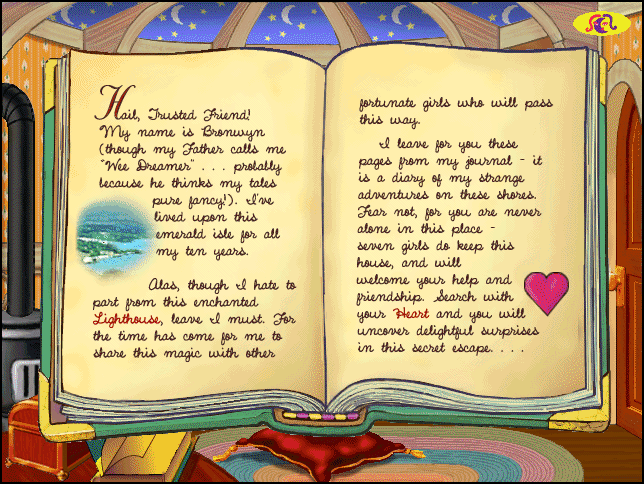 Hail, Trusted Friend!
My name is Bronwyn
(though my Father calls me
"Wee Dreamer" . . . probably
because he thinks my tales
pure fancy!). I've
lived upon this
emerald isle for all
my ten years.
Alas, though I hate to
part from this enchanted
Lighthouse, leave I must. For
the time has come for me to
share this magic with other
fortunate girls who will pass
this way.
I leave for you these
pages from my journal - it
is a diary of my strange
adventures on these shores.
Fear not, for you are never
alone in this place -
seven girls do keep this
house, and will
welcome your help and
friendship. Search with
your Heart and you will
uncover delightful surprises
in this secret escape. . . .